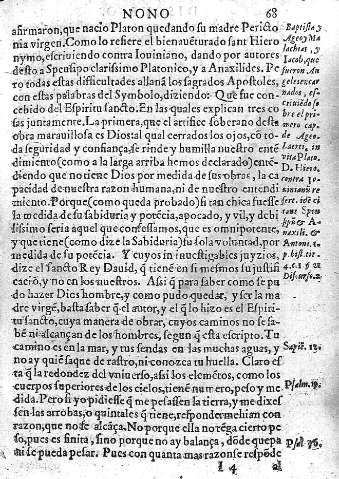 NONO 68
afirmaron, que nacio Platon quedando su madre Pericto
nia virgen. Como lo refiere el bienauēturado sant Hiero
nymo, escriuiendo contra Iouiniano, dando por autores
desto a Speusipo clarissimo Platonico, y a Anaxilides. Pe
ro todas estas difficultades allanā los sagrados Apostoles,
con estas palabras del Symbolo, diziendo: Que fue con-
cebido del Espiritu sancto. En las quales explican tres co
sas juntamente. La primera, que el artifice soberano desta
obra marauillosa es Dios: tal cerrados los ojos, cō to-
da seguridad y confiança, se rinde y humilla nuestro entē
dimiento (como a la larga arriba hemos declarado) entē-
diendo que no tiene Dios por medida de sus obras, la ca
pacidad de nuestra razon humana, ni de nuestro entendi
miento. Porque (como queda probado) si tan chica fuesse
la medida de su sabiduria y potēcia, apocado, y vil, y debi
lissimo seria aquel que confessamos, que es omnipotente,
y que tiene (como dize la Sabiduria) su sola voluntad, por
medida de su potēcia. Y cuyos in inuestigables juyzios,
dize el sancto Rey Dauid, q̄ tienē en si mesmos su justifi
cació, y no en los nuestros. Assi q̄ para saber como se pu
do hazer Dios hombre, y como pudo quedar, y ser la ma
dre virgē, basta saber q̄ el autor, y el q̄ lo hizo es el Espiri-
tu sancto, cuya manera de obrar, cuyos caminos no se sa-
bē ni alcançan de los hombres, segun q̄ esta escripto. Tu
camino es en la mar, y tus sendas en las muchas aguas, y
no ay quiē saque de rastro, ni conozca tu huella. Claro es
ta q̄ la redondez del vniuerso, assi los elemētos, como los
cuerpos superiores de los cielos, tienē numero, peso y me
dida. Pero si yo pidiesse q̄ me pesassen la tierra, y me dixes
sen las arrobas, o quintales q̄ tiene, responder me hian con
razon, que no se alcāça. No porque ella no tēga cierto pe
so, pues es finita, sino porque no ay balança, dōde quepa
ni se pueda pesar. Pues con quanta mas razon se respōde
I 4 al
Baptista y
Ageo y Ma
lachias, y
Iacob, que
fueron An
geles encar
nados, es-
criuiēdo so
bre el pri-
mero cap.
de Ageo.
Laerti. in
vita Plato.
D. Hiero.
contra Io-
uinianū re
fert. idē ci
tans Speu
sipū & A-
naxili. &
Antoni. 2.
p. hist. tit.
4. c. 1 § 2
Discurs. 2.
Sapiē. 12.
Psalm. 18.
Psal. 76.